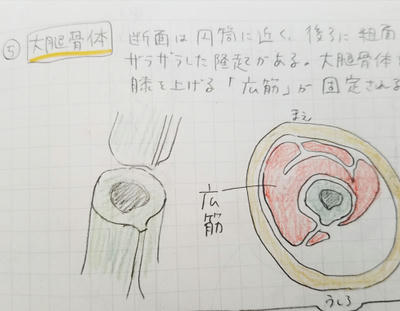 ⑤ 大腿骨体 断面は円筒に近く、後ろに粗面
ザラザラした隆起がある。大腿骨体
膝を上げる「広筋」が固定される
まえ
広筋
うしろ